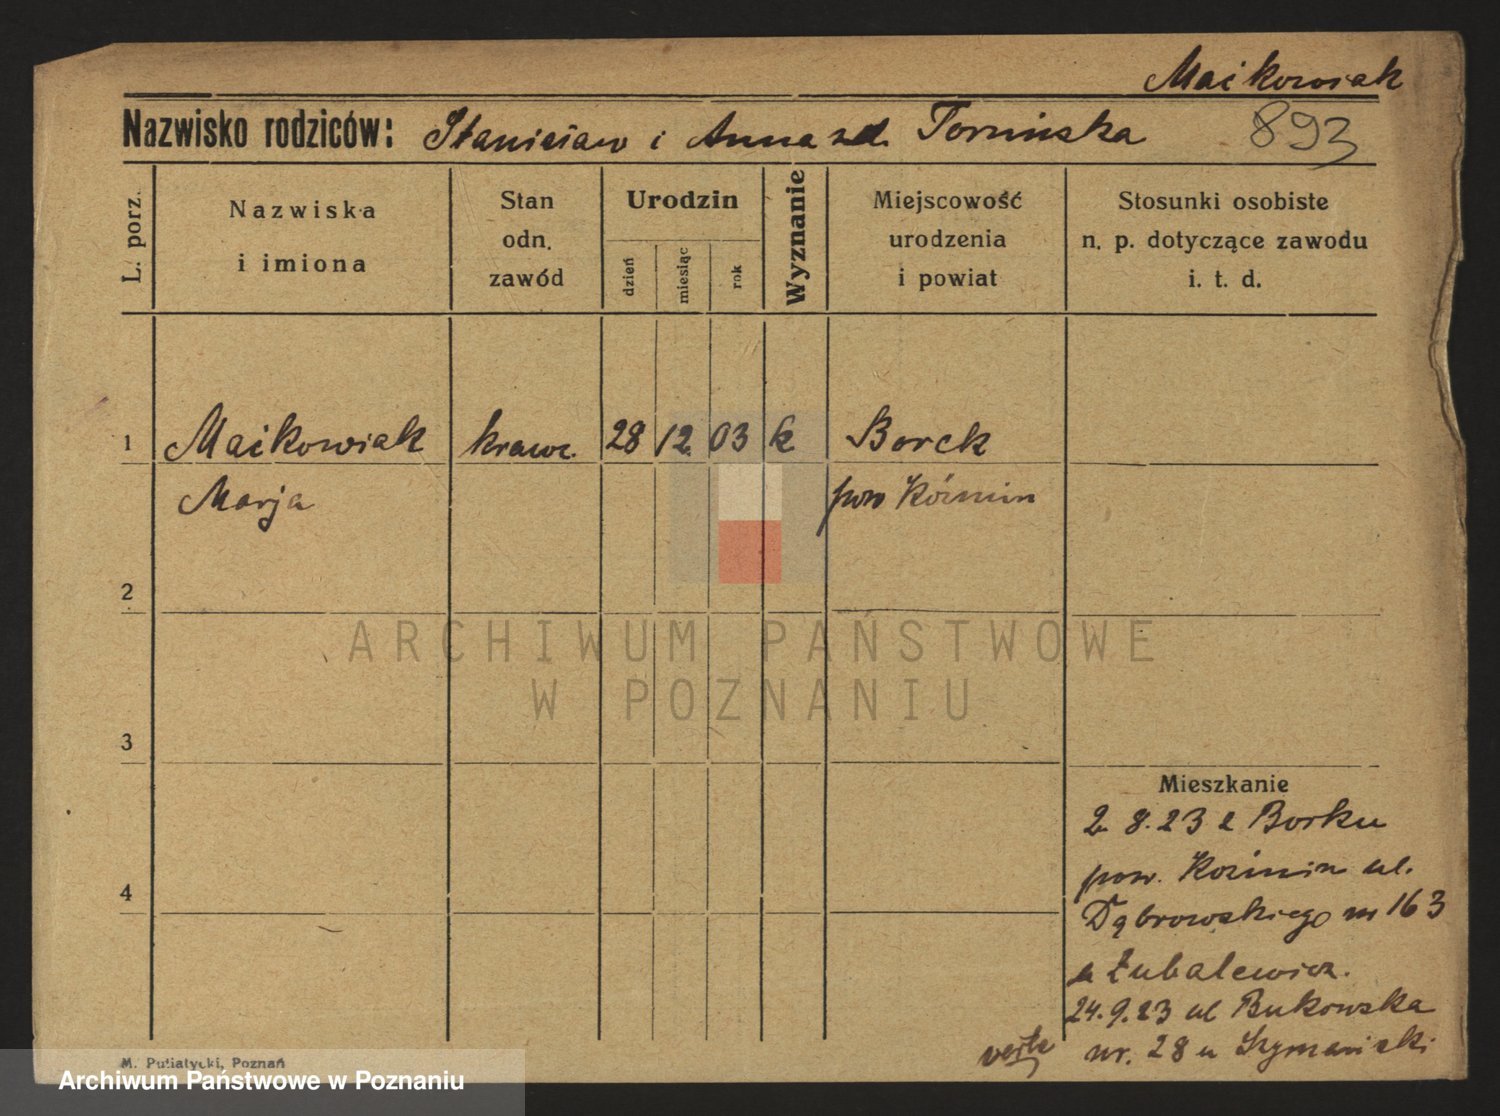 Maćkowiak
Nazwisko rodziców: Stanisław i Anna zd. Tomińska
893
L. porz.
Nazwiska
i imiona
Stan
odn.
zawód
Urodzin
dzień
miesiąc
rok
Wyznanie
Miejscowość
urodzenia
i powiat
Stosunki osobiste
n. p. dotyczące zawodu
i. t. d.
1 Maćkowiak krawc. 28 12 03 k Borek
Marja pow Koźmin
2
ARCHIWUM PAŃSTWOWE
W POZNANIU
3
Mieszkanie
2. 8. 23 z Borku
pow. Koźmin ul.
4
Dąbrowskiego nr 163
u Żubalewicz.
24.9.23 ul Bukowska
nr. 28 u Szymański
verte
M. Putiatycki, Poznań
Archiwum Państwowe w Poznaniu